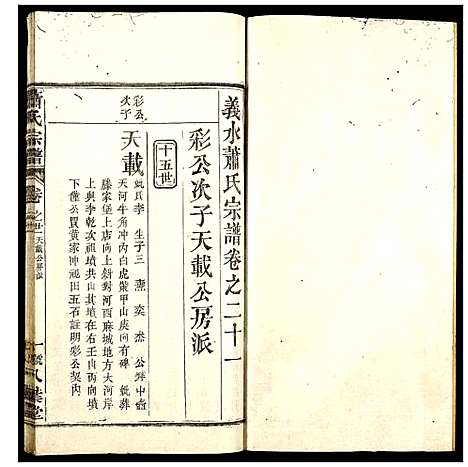 義水蕭氏宗譜卷之二十一
彩公次子天載公房派
十五世
彩公
次子
天載
妣氏李 生子三 燾 奕 杰 公葬中壺
天河牛角冲內白虎裝甲山庚向有碑 妣葬
滕家堡上店向上新對河西麻城地方大河岸
上與李乾次祖墳共山其墳在右壬山丙向墳
下僅公買黃家冲祝田五石註明彩公契內
蕭氏宗譜
卷之廿
天載公房派
一號
八葉堂